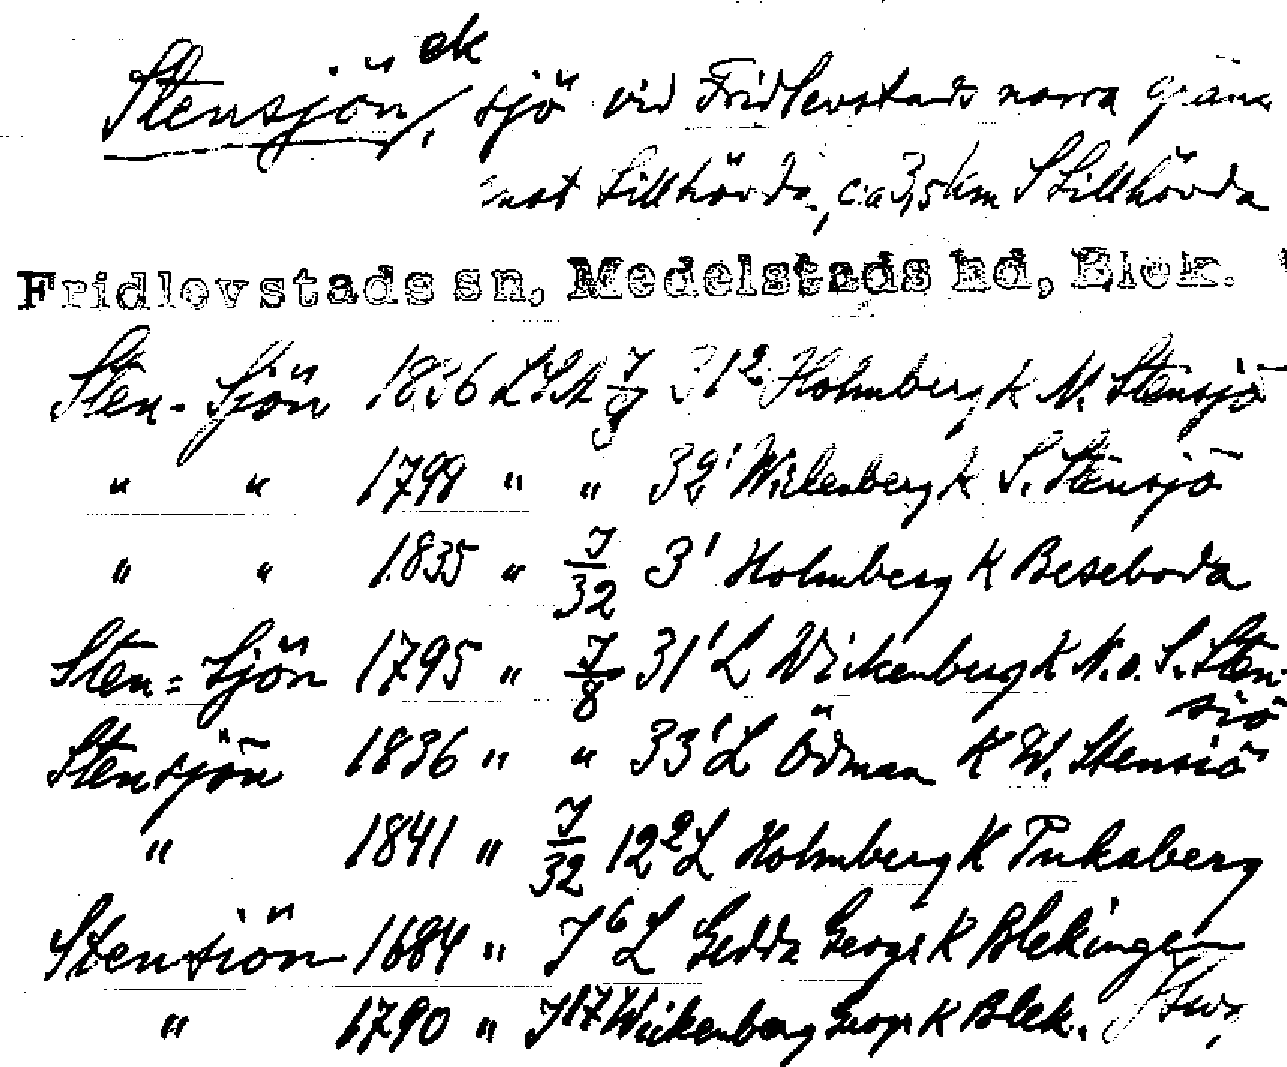 Stensjön, ek sjö vid Fridlevstads norra gräns
mot Tillhövda, ca 3,5 km S Tillhövda
Fridlevstads sn, Medelstads hd, Blek.
Sten-Sjön 1836 LSA J/8 31² Holmberg K N. Stensjö
" " 1798 " " 32¹ Wickenberg K S. Stensjö
" " 1835 " J/32 3¹ Holmberg K Beseboda
Sten=Sjön 1795 " J/8 31¹ L Wickenberg K N. o. S. Sten-
siö
Stensjön 1836 " " 33¹ L Ödman K W. Stensiö
" 1841 " J/32 12² L Holmberg K Pukaberg
Stensiön 1684 " J⁶ L Gedda Geogr K Blekingen
" 1790 " J¹⁷ Wickenberg Geogr K Blek.